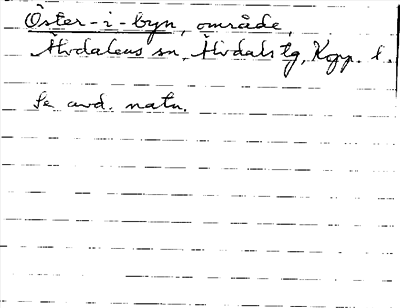 Öster-i-byn, område,
Älvdalens sn, Älvdals tg, Kopp. l.
Se avd. natn.